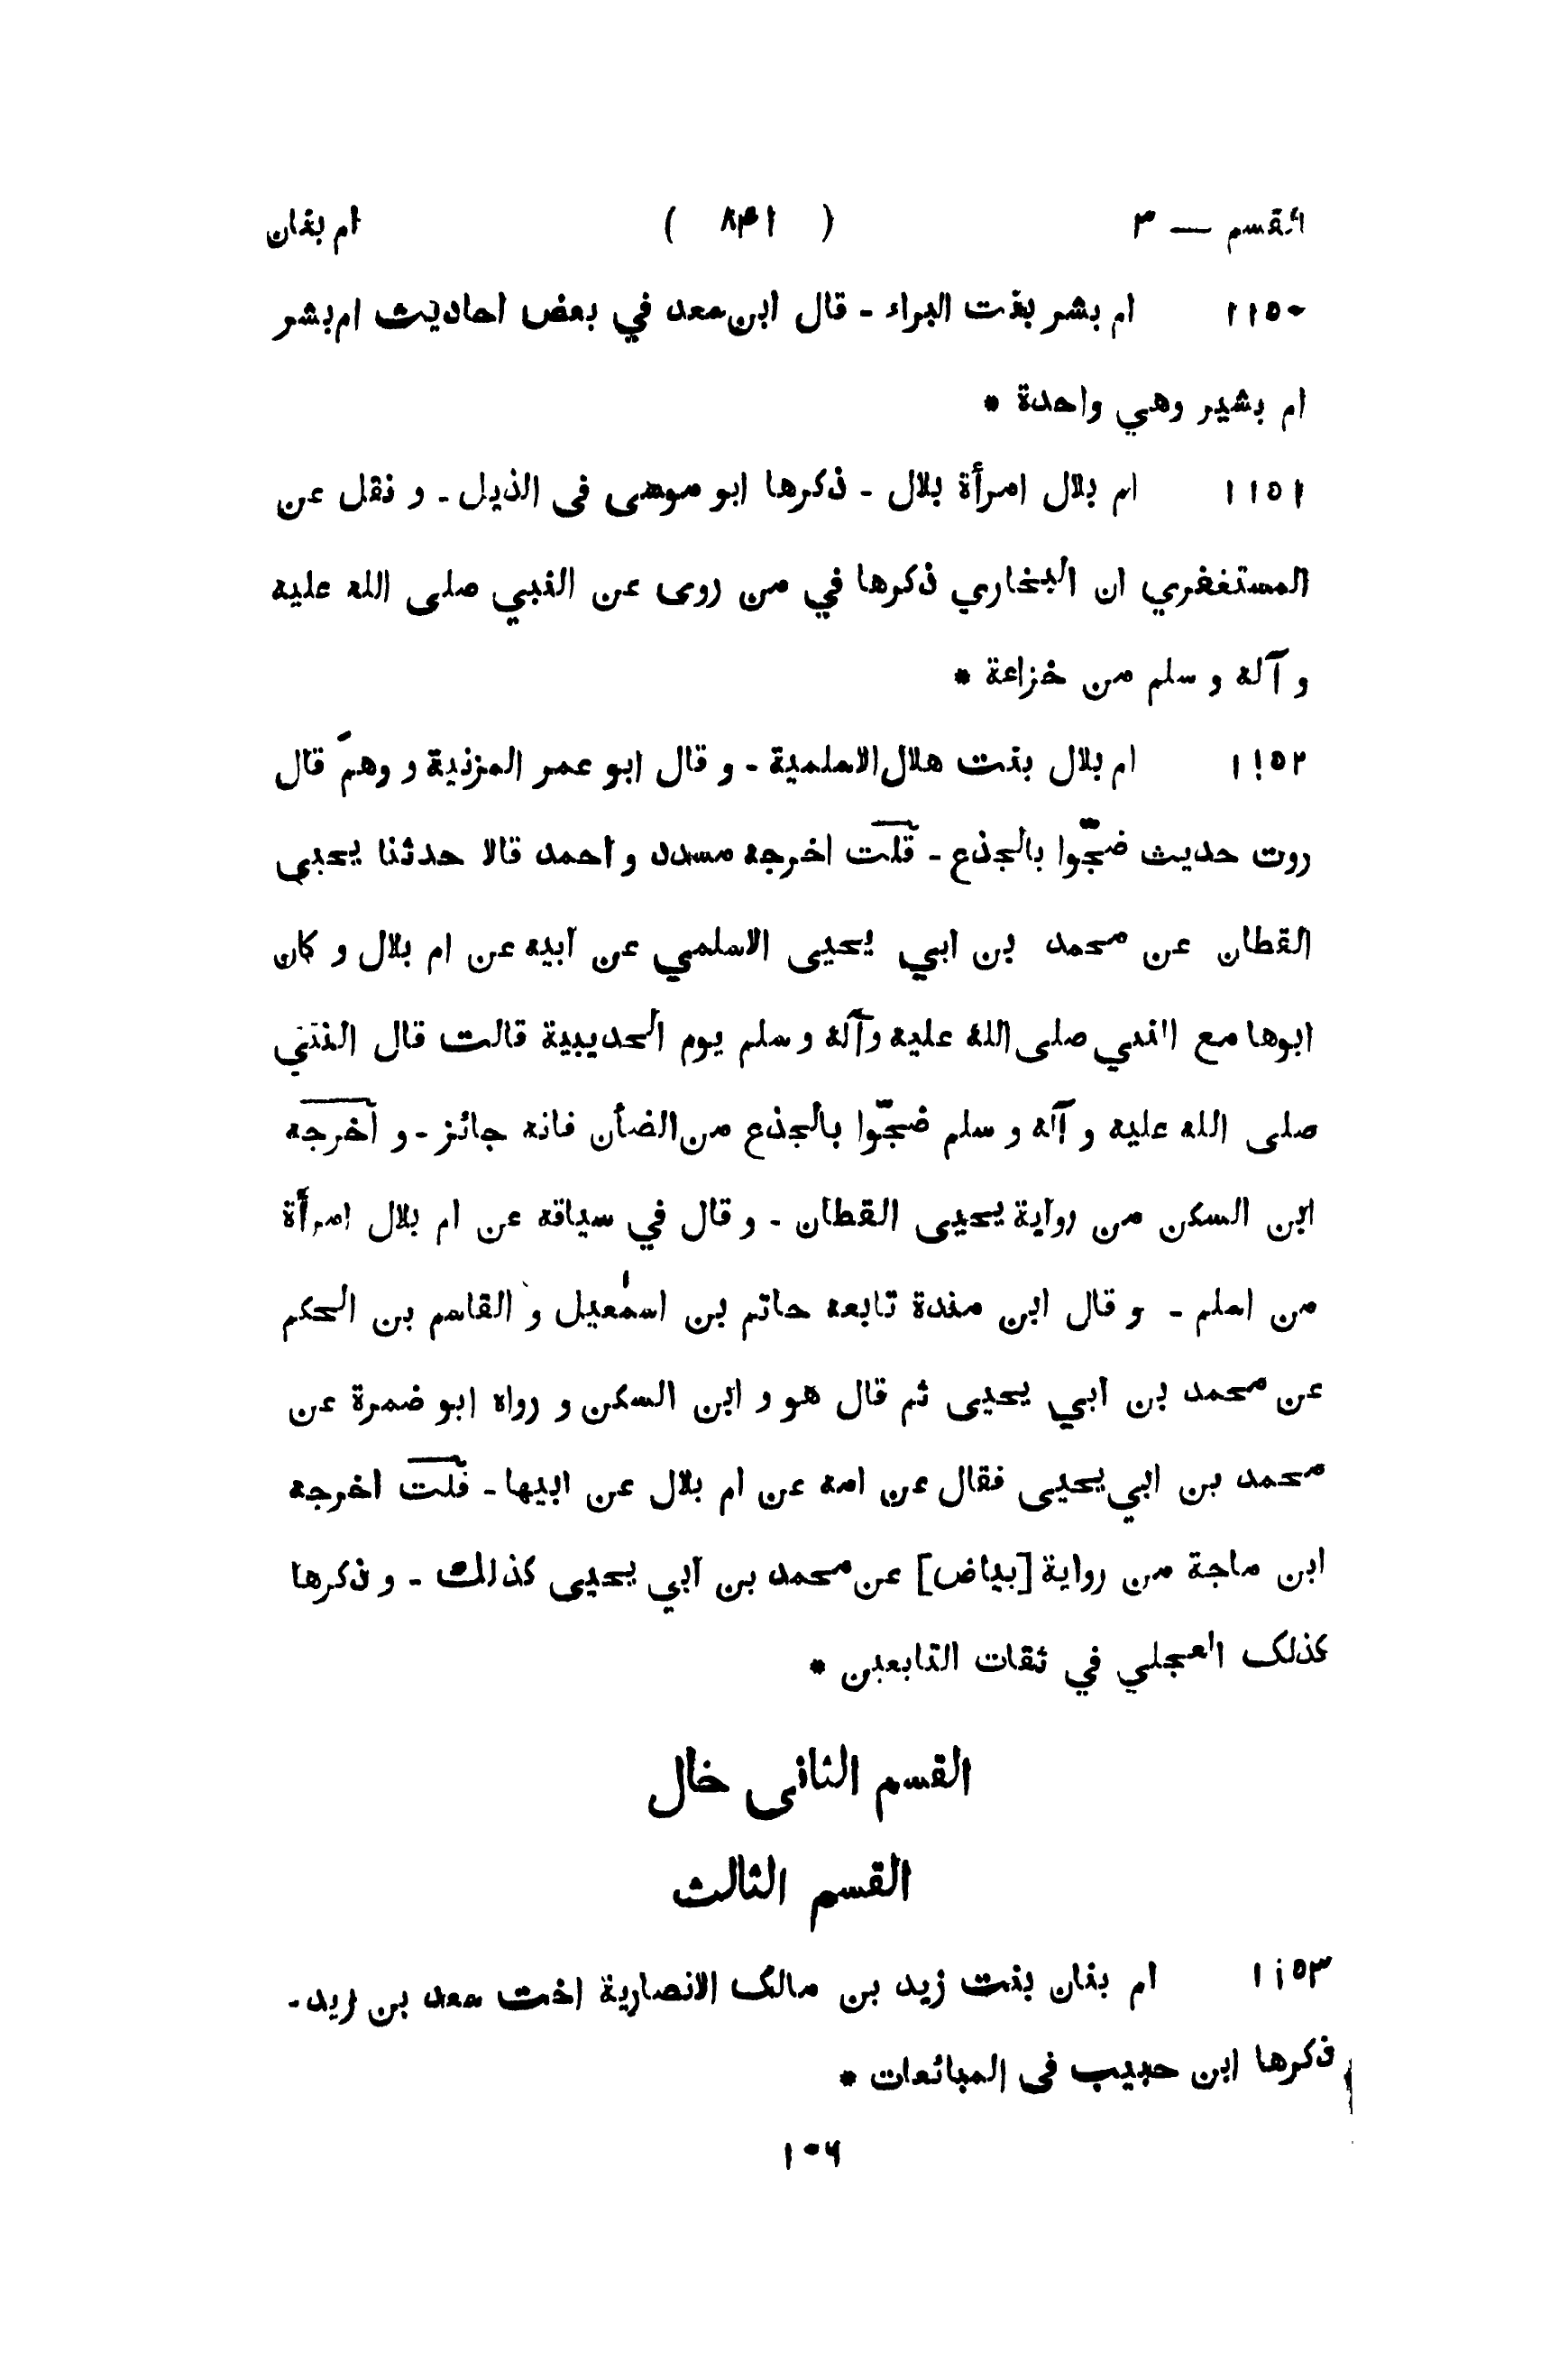 القسم — ٣ ( ٨٤١ ) ام بنان
١١٥٠ ام بشر بنت البراء - قال ابن سعد في بعض احاديث ام بشر
ام بشير وهي واحدة *
١١٥١ ام بلال امرأة بلال - ذكرها ابو موسى فى الذيل - و نقل عن
المستغفري ان البخاري ذكرها في من روى عن النبي صلى الله عليه
و آله و سلم من خزاعة *
١١٥٢ ام بلال بنت هلال الاسلمية - و قال ابو عمر المزنية و وهم قال
روت حديث ضحّوا بالجذع - قلت اخرجه مسدد و احمد قالا حدثنا يحيى
القطان عن محمد بن ابي يحيى الاسلمي عن ابيه عن ام بلال و كان
ابوها مع النبي صلى الله عليه وآله و سلم يوم الحديبية قالت قال النبي
صلى الله عليه و آله و سلم ضحّوا بالجذع من الضأن فانه جائز - و اخرجه
ابن السكن من رواية يحيى القطان - و قال في سياقه عن ام بلال امرأة
من اسلم - و قال ابن مندة تابعه حاتم بن اسمٰعيل و القاسم بن الحكم
عن محمد بن ابي يحيى ثم قال هو و ابن السكن و رواه ابو ضمرة عن
محمد بن ابي يحيى فقال عن امه عن ام بلال عن ابيها - قلت اخرجه
ابن ماجة من رواية [بياض] عن محمد بن ابي يحيى كذلك - و ذكرها
كذلك العجلي في ثقات التابعين *
القسم الثانى خال
القسم الثالث
١١٥٣ ام بنان بنت زيد بن مالك الانصارية اخت سعد بن زيد -
ذكرها ابن حبيب فى المبائعات *
١٠٦